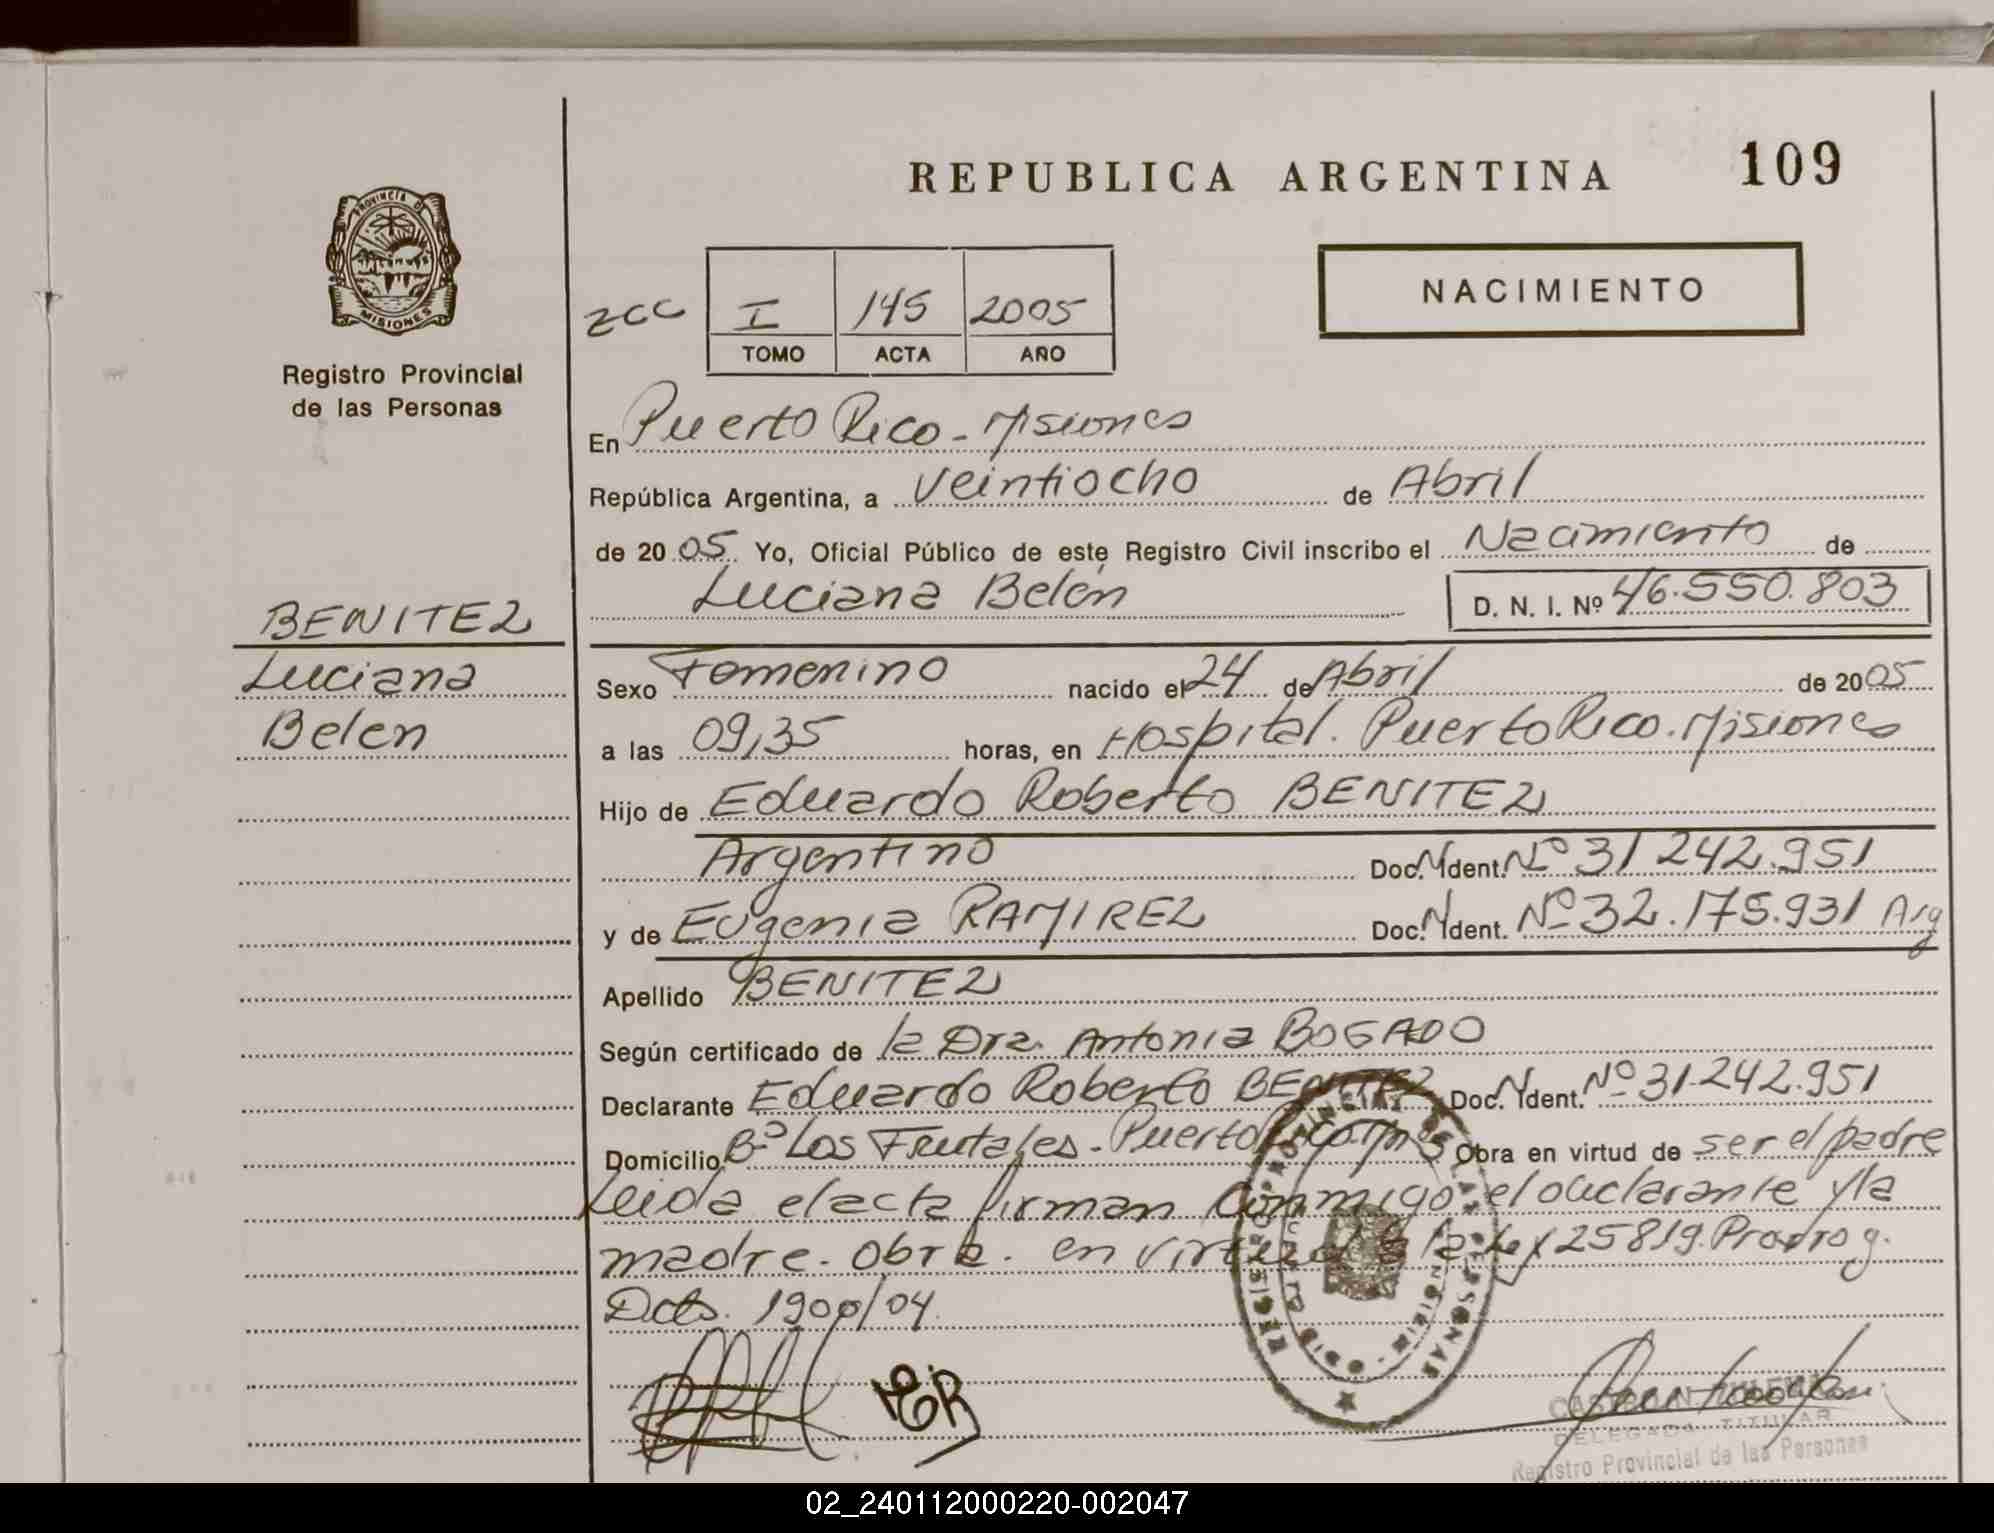 REPUBLICA ARGENTINA 109
PROVINCIA DE
MISIONES
Registro Provincial
de las Personas
NACIMIENTO
ZCC I 145 2005
TOMO ACTA AÑO
En Puerto Rico - Misiones
República Argentina, a Veintiocho de Abril
de 20 05 Yo, Oficial Público de este Registro Civil inscribo el Nacimiento de
Luciana Belén D. N. I. Nº 46.550.803
BENITEZ
Luciana
Belen
Sexo Femenino nacido el 24 de Abril de 20 05
a las 09,35 horas, en Hospital. Puerto Rico. Misiones
Hijo de Eduardo Roberto BENITEZ
Argentino Doc. N Ident. Nº 31 242.951
y de Eugenia RAMIREZ Doc. N Ident. Nº 32.175.931 Arg
Apellido BENITEZ
Según certificado de la Dra. Antonia BOGADO
Declarante Eduardo Roberto BENITEZ Doc. N Ident. Nº 31.242.951
Domicilio Bº Los Frutales - Puerto Rico Mnes Obra en virtud de ser el padre
Leida el acta firman conmigo el declarante y la
madre - Obra - en virtud de la Ley 25819. Prorrog.
Dcto. 1900/04.
REGISTRO PROVINCIAL DE LAS PERSONAS
DELEGADA TITULAR
Registro Provincial de las Personas
02_240112000220-002047